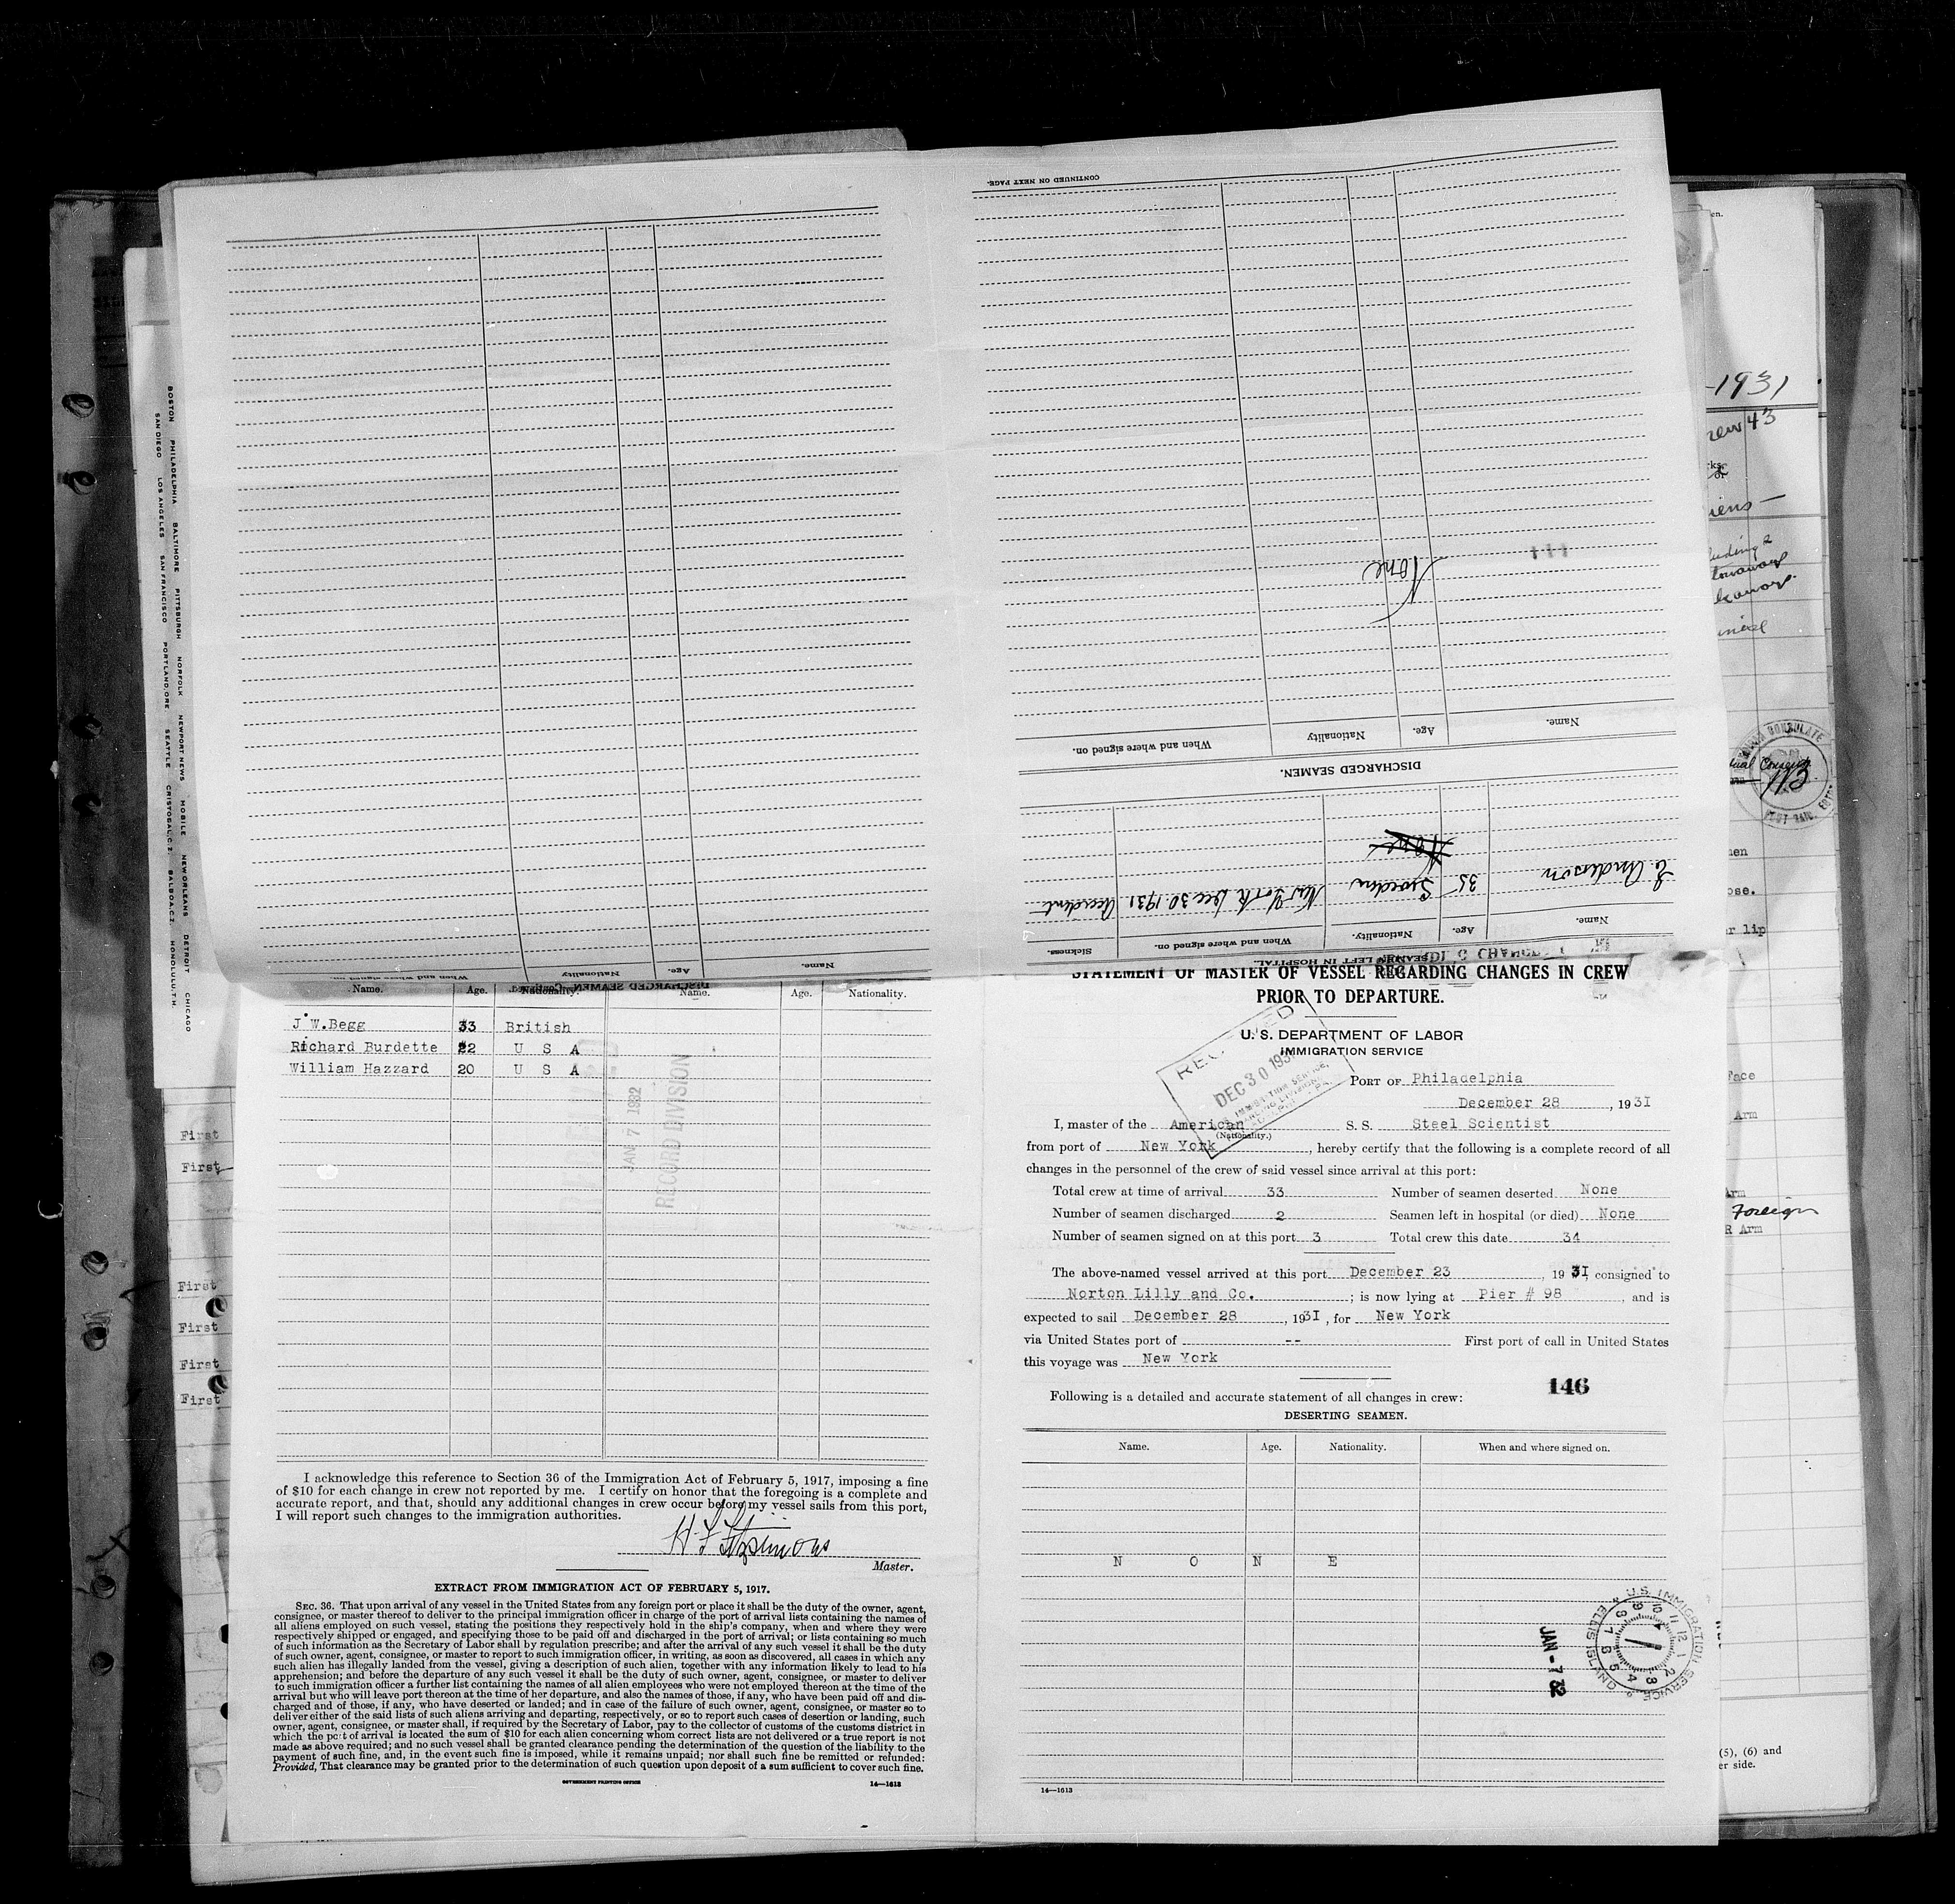 CONTINUED ON NEXT PAGE.
None
Name.
Age.
Nationality
When and where signed on.
DISCHARGED SEAMEN.
None
E. Anderson 35 Sweden New York Dec 30 1931 Accident
Name. Age. Nationality. When and where signed on. Sickness.
SEAMEN LEFT IN HOSPITAL.
Name. Age. Nationality When and where
DISCHARGED SEAMEN—Continued
BOSTON PHILADELPHIA BALTIMORE PITTSBURGH NORFOLK NEWPORT NEWS MOBILE NEW ORLEANS DETROIT CHICAGO
SAN DIEGO LOS ANGELES SAN FRANCISCO PORTLAND, ORE SEATTLE CRISTOBAL, C.Z. BALBOA, C.Z. HONOLULU, T.H.
Name. Age. Nationality. Name. Age. Nationality.
J W.Begg 33 British
Richard Burdette 22 U S A
William Hazzard 20 U S A
JAN 7 1932
RECORD DIVISION
I acknowledge this reference to Section 36 of the Immigration Act of February 5, 1917, imposing a fine
of $10 for each change in crew not reported by me. I certify on honor that the foregoing is a complete and
accurate report, and that, should any additional changes in crew occur before my vessel sails from this port,
I will report such changes to the immigration authorities.
H F Fitzsimons
Master.
EXTRACT FROM IMMIGRATION ACT OF FEBRUARY 5, 1917.
SEC. 36. That upon arrival of any vessel in the United States from any foreign port or place it shall be the duty of the owner, agent,
consignee, or master thereof to deliver to the principal immigration officer in charge of the port of arrival lists containing the names of
all aliens employed on such vessel, stating the positions they respectively hold in the ship's company, when and where they were
respectively shipped or engaged, and specifying those to be paid off and discharged in the port of arrival; or lists containing so much
of such information as the Secretary of Labor shall by regulation prescribe; and after the arrival of any such vessel it shall be the duty
of such owner, agent, consignee, or master to report to such immigration officer, in writing, as soon as discovered, all cases in which any
such alien has illegally landed from the vessel, giving a description of such alien, together with any information likely to lead to his
apprehension; and before the departure of any such vessel it shall be the duty of such owner, agent, consignee, or master to deliver
to such immigration officer a further list containing the names of all alien employees who were not employed thereon at the time of the
arrival but who will leave port thereon at the time of her departure, and also the names of those, if any, who have been paid off and dis-
charged and of those, if any, who have deserted or landed; and in case of the failure of such owner, agent, consignee, or master so to
deliver either of the said lists of such aliens arriving and departing, respectively, or so to report such cases of desertion or landing, such
owner, agent, consignee, or master shall, if required by the Secretary of Labor, pay to the collector of customs of the customs district in
which the port of arrival is located the sum of $10 for each alien concerning whom correct lists are not delivered or a true report is not
made as above required; and no such vessel shall be granted clearance pending the determination of the question of the liability to the
payment of such fine, and, in the event such fine is imposed, while it remains unpaid; nor shall such fine be remitted or refunded:
Provided, That clearance may be granted prior to the determination of such question upon deposit of a sum sufficient to cover such fine.
GOVERNMENT PRINTING OFFICE 14—1613
STATEMENT OF MASTER OF VESSEL REGARDING CHANGES IN CREW
PRIOR TO DEPARTURE.
U. S. DEPARTMENT OF LABOR
IMMIGRATION SERVICE
RECEIVED
DEC 30 1931
PORT OF Philadelphia
December 28, 1931
I, master of the American S. S. Steel Scientist
(Nationality.)
from port of New York, hereby certify that the following is a complete record of all
changes in the personnel of the crew of said vessel since arrival at this port:
Total crew at time of arrival 33 Number of seamen deserted None
Number of seamen discharged 2 Seamen left in hospital (or died) None
Number of seamen signed on at this port 3 Total crew this date 34
The above-named vessel arrived at this port December 23, 1931, consigned to
Norton Lilly and Co. ; is now lying at Pier # 98, and is
expected to sail December 28, 1931, for New York
via United States port of -- First port of call in United States
this voyage was New York
146
Following is a detailed and accurate statement of all changes in crew:
DESERTING SEAMEN.
Name. Age. Nationality. When and where signed on.
N O N E
U.S. IMMIGRATION SERVICE ELLIS ISLAND
JAN -7 32
14—1613
First
First
First
First
First
First
-1931
43
lip
Face
Arm
Arm
Foreign
R Arm
(5), (6) and
er side.